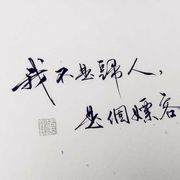 我不是歸人，
是個嫖客